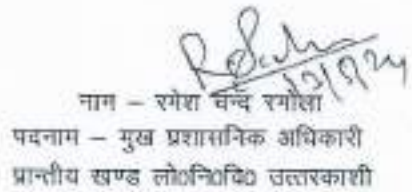 12/9/24
नाम – रमेश चन्द रमोला
पदनाम – मुख प्रशासनिक अधिकारी
प्रान्तीय खण्ड लो०नि०वि० उत्तरकाशी